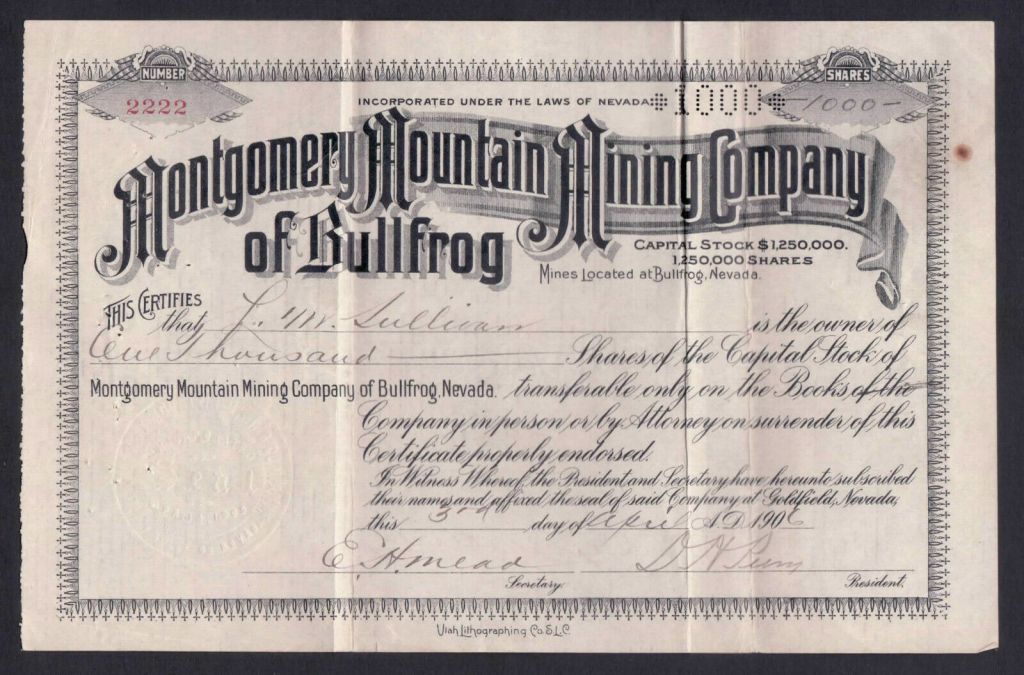 NUMBER
2222
SHARES
-1000-
INCORPORATED UNDER THE LAWS OF NEVADA
1000
Montgomery Mountain Mining Company
of Bullfrog
CAPITAL STOCK $1,250,000.
1,250,000 SHARES
Mines Located at Bullfrog, Nevada.
THIS CERTIFIES
that L. M. Sullivan is the owner of
One Thousand Shares of the Capital Stock of
Montgomery Mountain Mining Company of Bullfrog, Nevada. transferable only on the Books of the
Company in person or by Attorney on surrender of this
Certificate properly endorsed.
In Witness Whereof, the President and Secretary have hereunto subscribed
their names and affixed the seal of said Company at Goldfield, Nevada,
this 3rd day of April A.D. 1906
E. H. Mead
Secretary.
President.
Utah Lithographing Co. S.L.C.